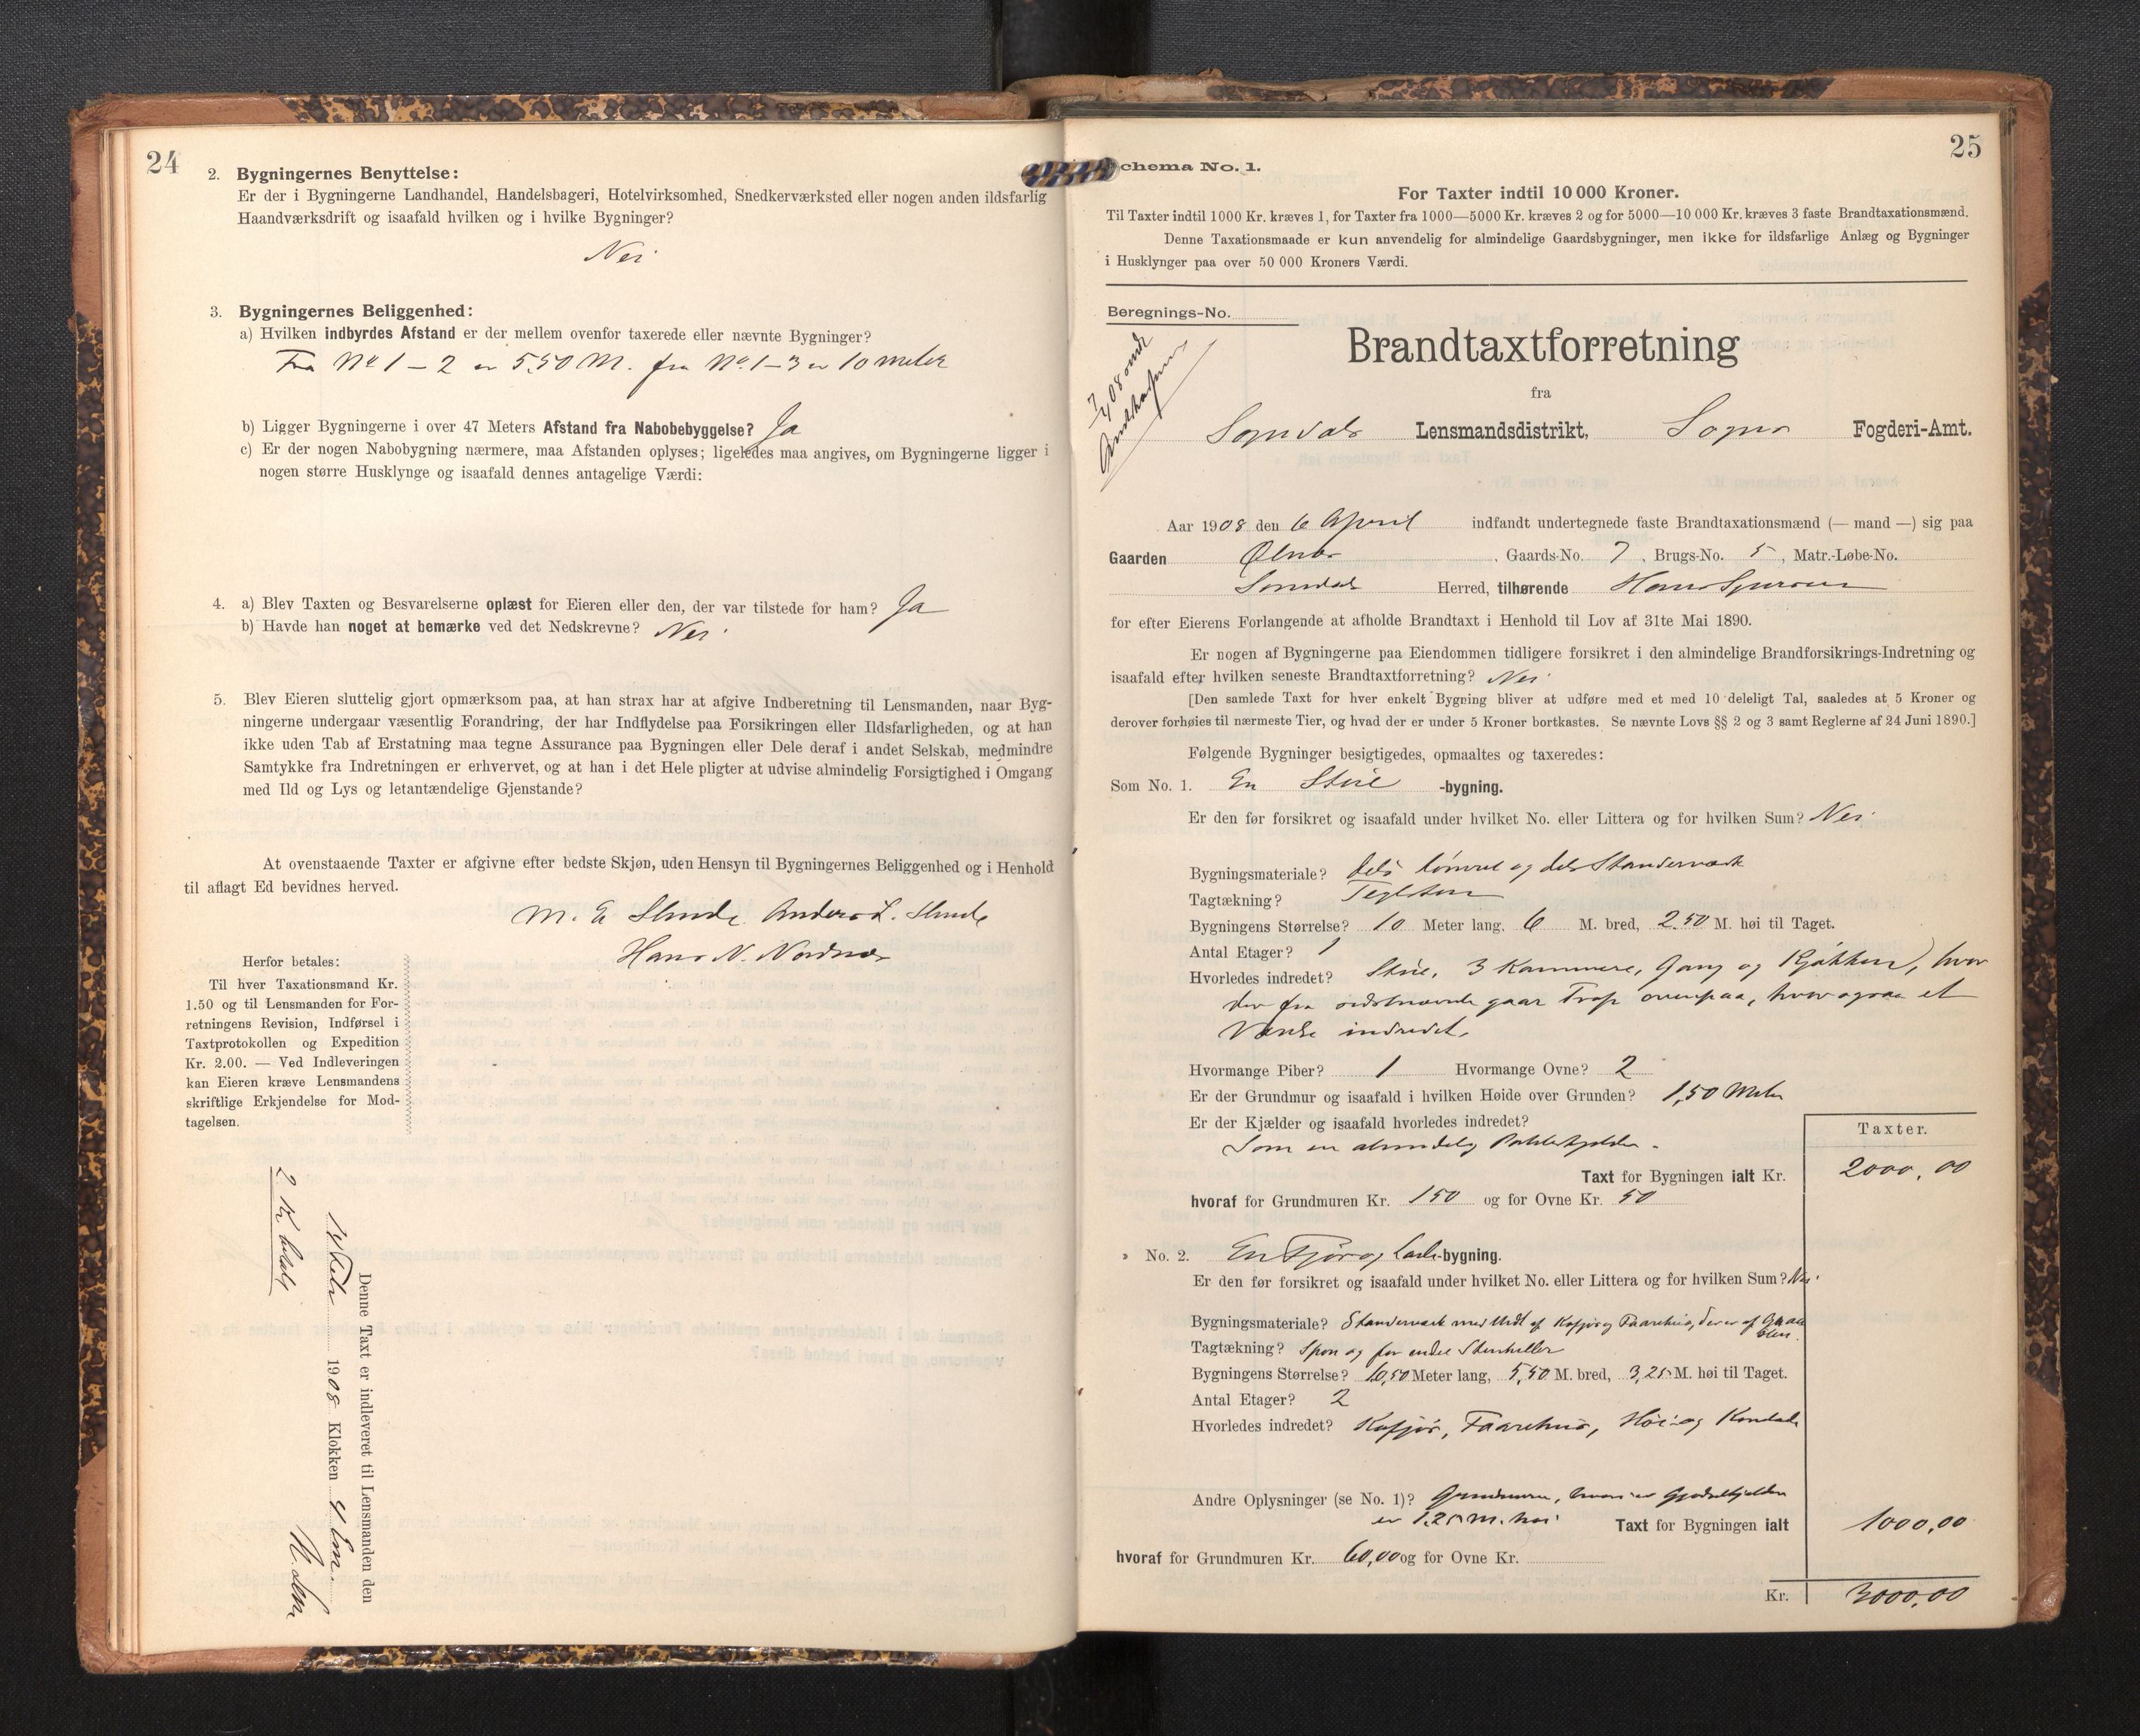 24
2. Bygningernes Benyttelse:
Er der i Bygningerne Landhandel, Handelsbageri, Hotelvirksomhed, Snedkerværksted eller nogen anden ildsfarlig
Haandværksdrift og isaafald hvilken og i hvilke Bygninger?
Nei.
3. Bygningernes Beliggenhed:
a) Hvilken indbyrdes Afstand er der mellem ovenfor taxerede eller nævnte Bygninger?
Fra No 1 – 2 er 5,50 M. fra No. 1 – 3 er 10 meter
b) Ligger Bygningerne i over 47 Meters Afstand fra Nabobebyggelse? Ja
c) Er der nogen Nabobygning nærmere, maa Afstanden oplyses; ligeledes maa angives, om Bygningerne ligger i
nogen større Husklynge og isaafald dennes antagelige Værdi:
4. a) Blev Taxten og Besvarelserne oplæst for Eieren eller den, der var tilstede for ham? Ja
b) Havde han noget at bemærke ved det Nedskrevne? Nei.
5. Blev Eieren sluttelig gjort opmærksom paa, at han strax har at afgive Indberetning til Lensmanden, naar Byg-
ningerne undergaar væsentlig Forandring, der har Indflydelse paa Forsikringen eller Ildsfarligheden, og at han
ikke uden Tab af Erstatning maa tegne Assurance paa Bygningen eller Dele deraf i andet Selskab, medmindre
Samtykke fra Indretningen er erhvervet, og at han i det Hele pligter at udvise almindelig Forsigtighed i Omgang
med Ild og Lys og letantændelige Gjenstande?
At ovenstaaende Taxter er afgivne efter bedste Skjøn, uden Hensyn til Bygningernes Beliggenhed og i Henhold
til aflagt Ed bevidnes herved.
M. E Slinde Anders L. Slinde
Hans N. Nordnæs
Herfor betales:
Til hver Taxationsmand Kr.
1.50 og til Lensmanden for For-
retningens Revision, Indførsel i
Taxtprotokollen og Expedition
Kr. 2.00. — Ved Indleveringen
kan Eieren kræve Lensmandens
skriftlige Erkjendelse for Mod-
tagelsen.
2 Kr betalt
Denne Taxt er indleveret til Lensmanden den
1908 Klokken 4 Em.
25
Schema No. 1.
For Taxter indtil 10 000 Kroner.
Til Taxter indtil 1000 Kr. kræves 1, for Taxter fra 1000—5000 Kr. kræves 2 og for 5000—10 000 Kr. kræves 3 faste Brandtaxationsmænd.
Denne Taxationsmaade er kun anvendelig for almindelige Gaardsbygninger, men ikke for ildsfarlige Anlæg og Bygninger
i Husklynger paa over 50 000 Kroners Værdi.
Beregnings-No.
Brandtaxtforretning
fra
Sogndals Lensmandsdistrikt, Sogns Fogderi-Amt.
Aar 1908 den 6 April indfandt undertegnede faste Brandtaxationsmænd (— mand —) sig paa
Gaarden Ølnæs, Gaards-No. 7, Brugs-No. 5, Matr.-Løbe-No.
Sogndals Herred, tilhørende Hans
for efter Eierens Forlangende at afholde Brandtaxt i Henhold til Lov af 31te Mai 1890.
Er nogen af Bygningerne paa Eiendommen tidligere forsikret i den almindelige Brandforsikrings-Indretning og
isaafald efter hvilken seneste Brandtaxtforretning? Nei.
[Den samlede Taxt for hver enkelt Bygning bliver at udføre med et med 10 deleligt Tal, saaledes at 5 Kroner og
derover forhøies til nærmeste Tier, og hvad der er under 5 Kroner bortkastes. Se nævnte Lovs §§ 2 og 3 samt Reglerne af 24 Juni 1890.]
Følgende Bygninger besigtigedes, opmaaltes og taxeredes:
Som No. 1. En Stue -bygning.
Er den før forsikret og isaafald under hvilket No. eller Littera og for hvilken Sum? Nei.
Bygningsmateriale? dels tømret og dels Standerværk
Tagtækning? Teglsten
Bygningens Størrelse? 10 Meter lang, 6 M. bred, 2.50 M. høi til Taget.
Antal Etager? 1
Hvorledes indredet? Stue, 3 Kammere, Gang og Kjøkken, hvor
der fra sidstnævnte gaar Trap ovenpaa, hvor ogsaa et
Værelse indredet.
Hvormange Piber? 1 Hvormange Ovne? 2
Er der Grundmur og isaafald i hvilken Høide over Grunden? 1,50 Meter
Er der Kjælder og isaafald hvorledes indredet?
Som en almindelig Potetkjelder.
Taxter.
Taxt for Bygningen ialt Kr. 2000,00
hvoraf for Grundmuren Kr. 150 og for Ovne Kr. 50
No. 2. En Fjøs og Lade-bygning.
Er den før forsikret og isaafald under hvilket No. eller Littera og for hvilken Sum? Nei.
Bygningsmateriale? Standerværk med Undt af Kofjøs og Faarehus, der er af
Tagtækning? Spon og for endel Stenheller
Bygningens Størrelse? 10,50 Meter lang, 5,50 M. bred, 3,25 M. høi til Taget.
Antal Etager? 2
Hvorledes indredet? Kofjøs, Faarehus, Høi- og Kornlade
Andre Oplysninger (se No. 1)? Grundmuren, hvori er Gjødselkjelder
er 1.25 M. høi.
Taxt for Bygningen ialt 1000,00
hvoraf for Grundmuren Kr. 60,00 og for Ovne Kr.
Kr. 3000,00